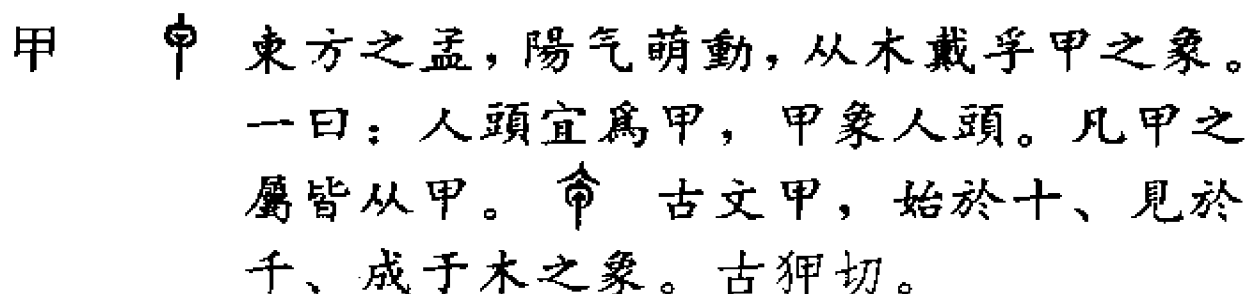 甲 東方之孟，陽气萌動，从木戴孚甲之象。
一曰：人頭宜爲甲，甲象人頭。凡甲之
屬皆从甲。 古文甲，始於十、見於
千、成于木之象。古狎切。